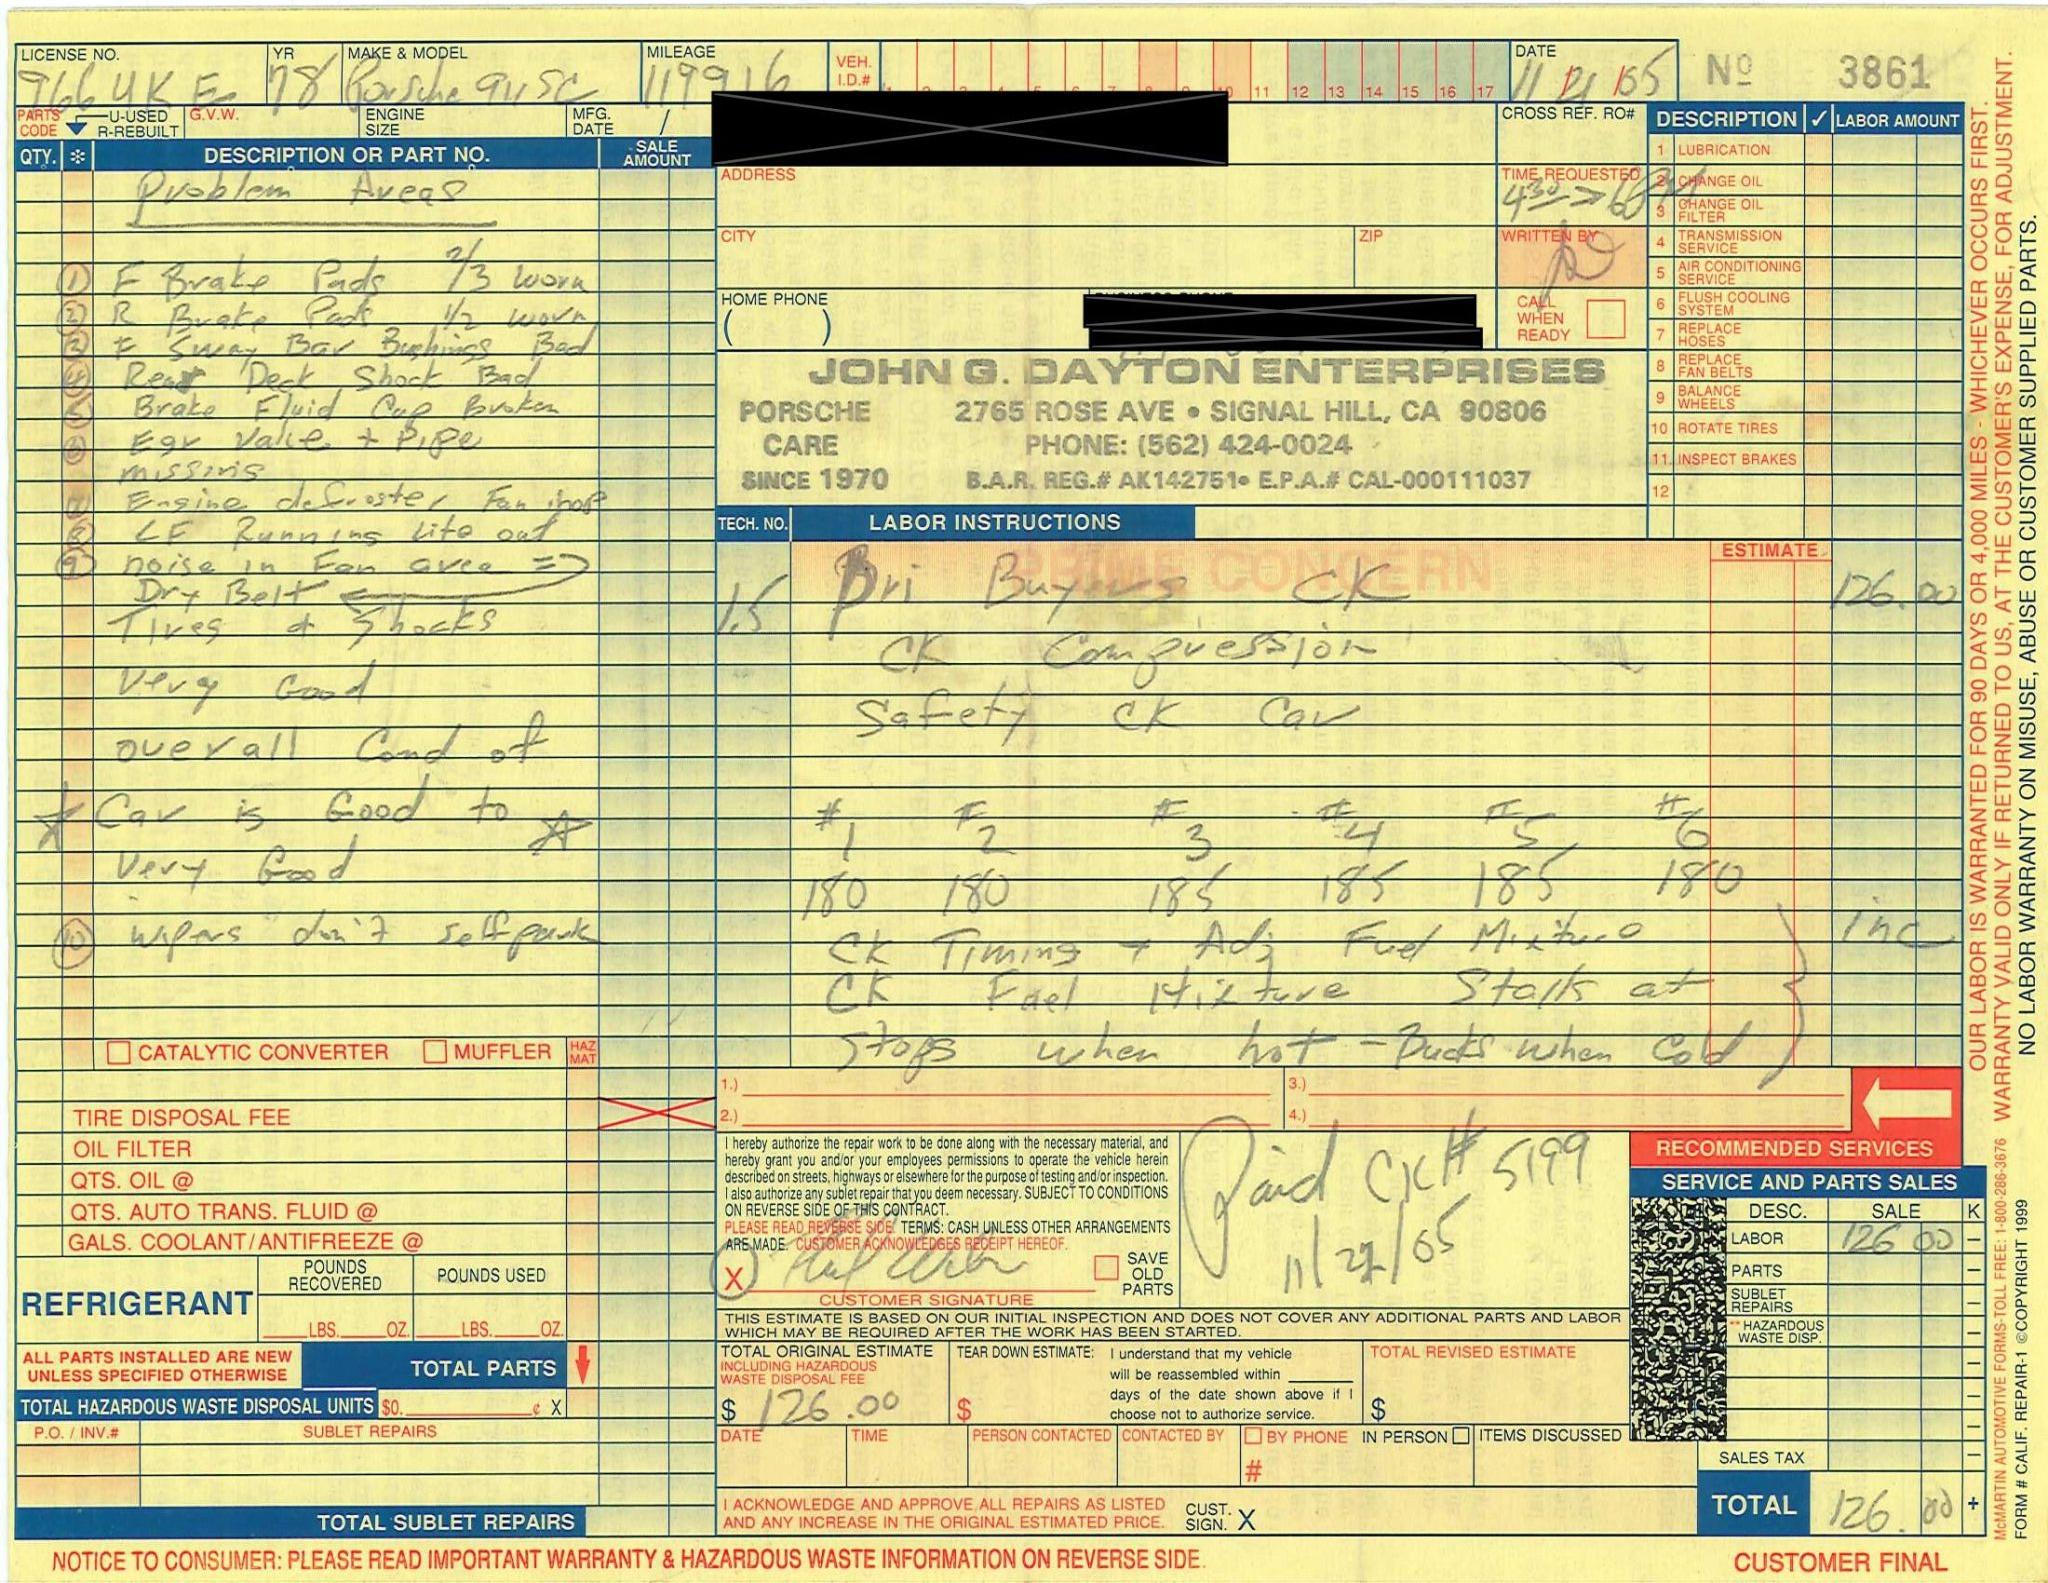 LICENSE NO. YR MAKE & MODEL MILEAGE VEH. I.D.# DATE
966 UKE 78 Porsche 911SC 119916 11 21 05 Nº 3861
PARTS CODE U-USED R-REBUILT G.V.W. ENGINE SIZE MFG. DATE /
11 12 13 14 15 16 17
CROSS REF. RO#
QTY. * DESCRIPTION OR PART NO. SALE AMOUNT
Problem Areas
1 F Brake Pads 2/3 worn
2 R Brake Pads 1/2 worn
3 F Sway Bar Bushings Bad
4 Rear Deck Shock Bad
5 Brake Fluid Cap Broken
6 Egr Valve + Pipe
missing
7 Engine defroster Fan inop
8 LF Running Lite out
9 noise in Fan area =>
Dry Belt
Tires & Shocks
Very Good
overall Cond of
Car is Good to
Very Good
10 wipers don't self park
CATALYTIC CONVERTER MUFFLER HAZ MAT
TIRE DISPOSAL FEE
OIL FILTER
QTS. OIL @
QTS. AUTO TRANS. FLUID @
GALS. COOLANT/ANTIFREEZE @
REFRIGERANT
POUNDS RECOVERED POUNDS USED
LBS. OZ. LBS. OZ.
ALL PARTS INSTALLED ARE NEW
UNLESS SPECIFIED OTHERWISE
TOTAL PARTS
TOTAL HAZARDOUS WASTE DISPOSAL UNITS $0. ¢ X
P.O. / INV.# SUBLET REPAIRS
TOTAL SUBLET REPAIRS
ADDRESS
CITY ZIP
HOME PHONE
( )
TIME REQUESTED
4 30
WRITTEN BY
CALL WHEN READY
JOHN G. DAYTON ENTERPRISES
PORSCHE 2765 ROSE AVE • SIGNAL HILL, CA 90806
CARE PHONE: (562) 424-0024
SINCE 1970 B.A.R. REG.# AK142751• E.P.A.# CAL-000111037
DESCRIPTION ✓ LABOR AMOUNT
1 LUBRICATION
2 CHANGE OIL
3 CHANGE OIL FILTER
4 TRANSMISSION SERVICE
5 AIR CONDITIONING SERVICE
6 FLUSH COOLING SYSTEM
7 REPLACE HOSES
8 REPLACE FAN BELTS
9 BALANCE WHEELS
10 ROTATE TIRES
11 INSPECT BRAKES
12
TECH. NO. LABOR INSTRUCTIONS
PRIME CONCERN ESTIMATE
1.5 Pri Buyers CK 126.00
CK Compression
Safety CK Car
#1 #2 #3 #4 #5 #6
180 180 185 185 185 180
CK Timing + Adj Fuel Mixture inc
CK Fuel Mixture Stalls at
Stops when hot - Bucks when Cold
1.) 3.)
2.) 4.)
RECOMMENDED SERVICES
I hereby authorize the repair work to be done along with the necessary material, and
hereby grant you and/or your employees permissions to operate the vehicle herein
described on streets, highways or elsewhere for the purpose of testing and/or inspection.
I also authorize any sublet repair that you deem necessary. SUBJECT TO CONDITIONS
ON REVERSE SIDE OF THIS CONTRACT.
PLEASE READ REVERSE SIDE. TERMS: CASH UNLESS OTHER ARRANGEMENTS
ARE MADE. CUSTOMER ACKNOWLEDGES RECEIPT HEREOF.
X
CUSTOMER SIGNATURE
SAVE OLD PARTS
Paid CK# 5199
11/22/05
THIS ESTIMATE IS BASED ON OUR INITIAL INSPECTION AND DOES NOT COVER ANY ADDITIONAL PARTS AND LABOR
WHICH MAY BE REQUIRED AFTER THE WORK HAS BEEN STARTED.
TOTAL ORIGINAL ESTIMATE
INCLUDING HAZARDOUS
WASTE DISPOSAL FEE
$ 126.00
TEAR DOWN ESTIMATE: I understand that my vehicle
will be reassembled within
days of the date shown above if I
choose not to authorize service.
$
TOTAL REVISED ESTIMATE
$
DATE TIME PERSON CONTACTED CONTACTED BY BY PHONE IN PERSON ITEMS DISCUSSED
#
I ACKNOWLEDGE AND APPROVE ALL REPAIRS AS LISTED
AND ANY INCREASE IN THE ORIGINAL ESTIMATED PRICE.
CUST. SIGN. X
SERVICE AND PARTS SALES
DESC. SALE K
LABOR 126 00 -
PARTS -
SUBLET REPAIRS -
** HAZARDOUS WASTE DISP. -
SALES TAX -
TOTAL 126.00 +
NOTICE TO CONSUMER: PLEASE READ IMPORTANT WARRANTY & HAZARDOUS WASTE INFORMATION ON REVERSE SIDE.
CUSTOMER FINAL
OUR LABOR IS WARRANTED FOR 90 DAYS OR 4,000 MILES - WHICHEVER OCCURS FIRST.
WARRANTY VALID ONLY IF RETURNED TO US, AT THE CUSTOMER'S EXPENSE, FOR ADJUSTMENT.
NO LABOR WARRANTY ON MISUSE, ABUSE OR CUSTOMER SUPPLIED PARTS.
McMARTIN AUTOMOTIVE FORMS-TOLL FREE: 1-800-286-3676
FORM # CALIF. REPAIR-1 ©COPYRIGHT 1999